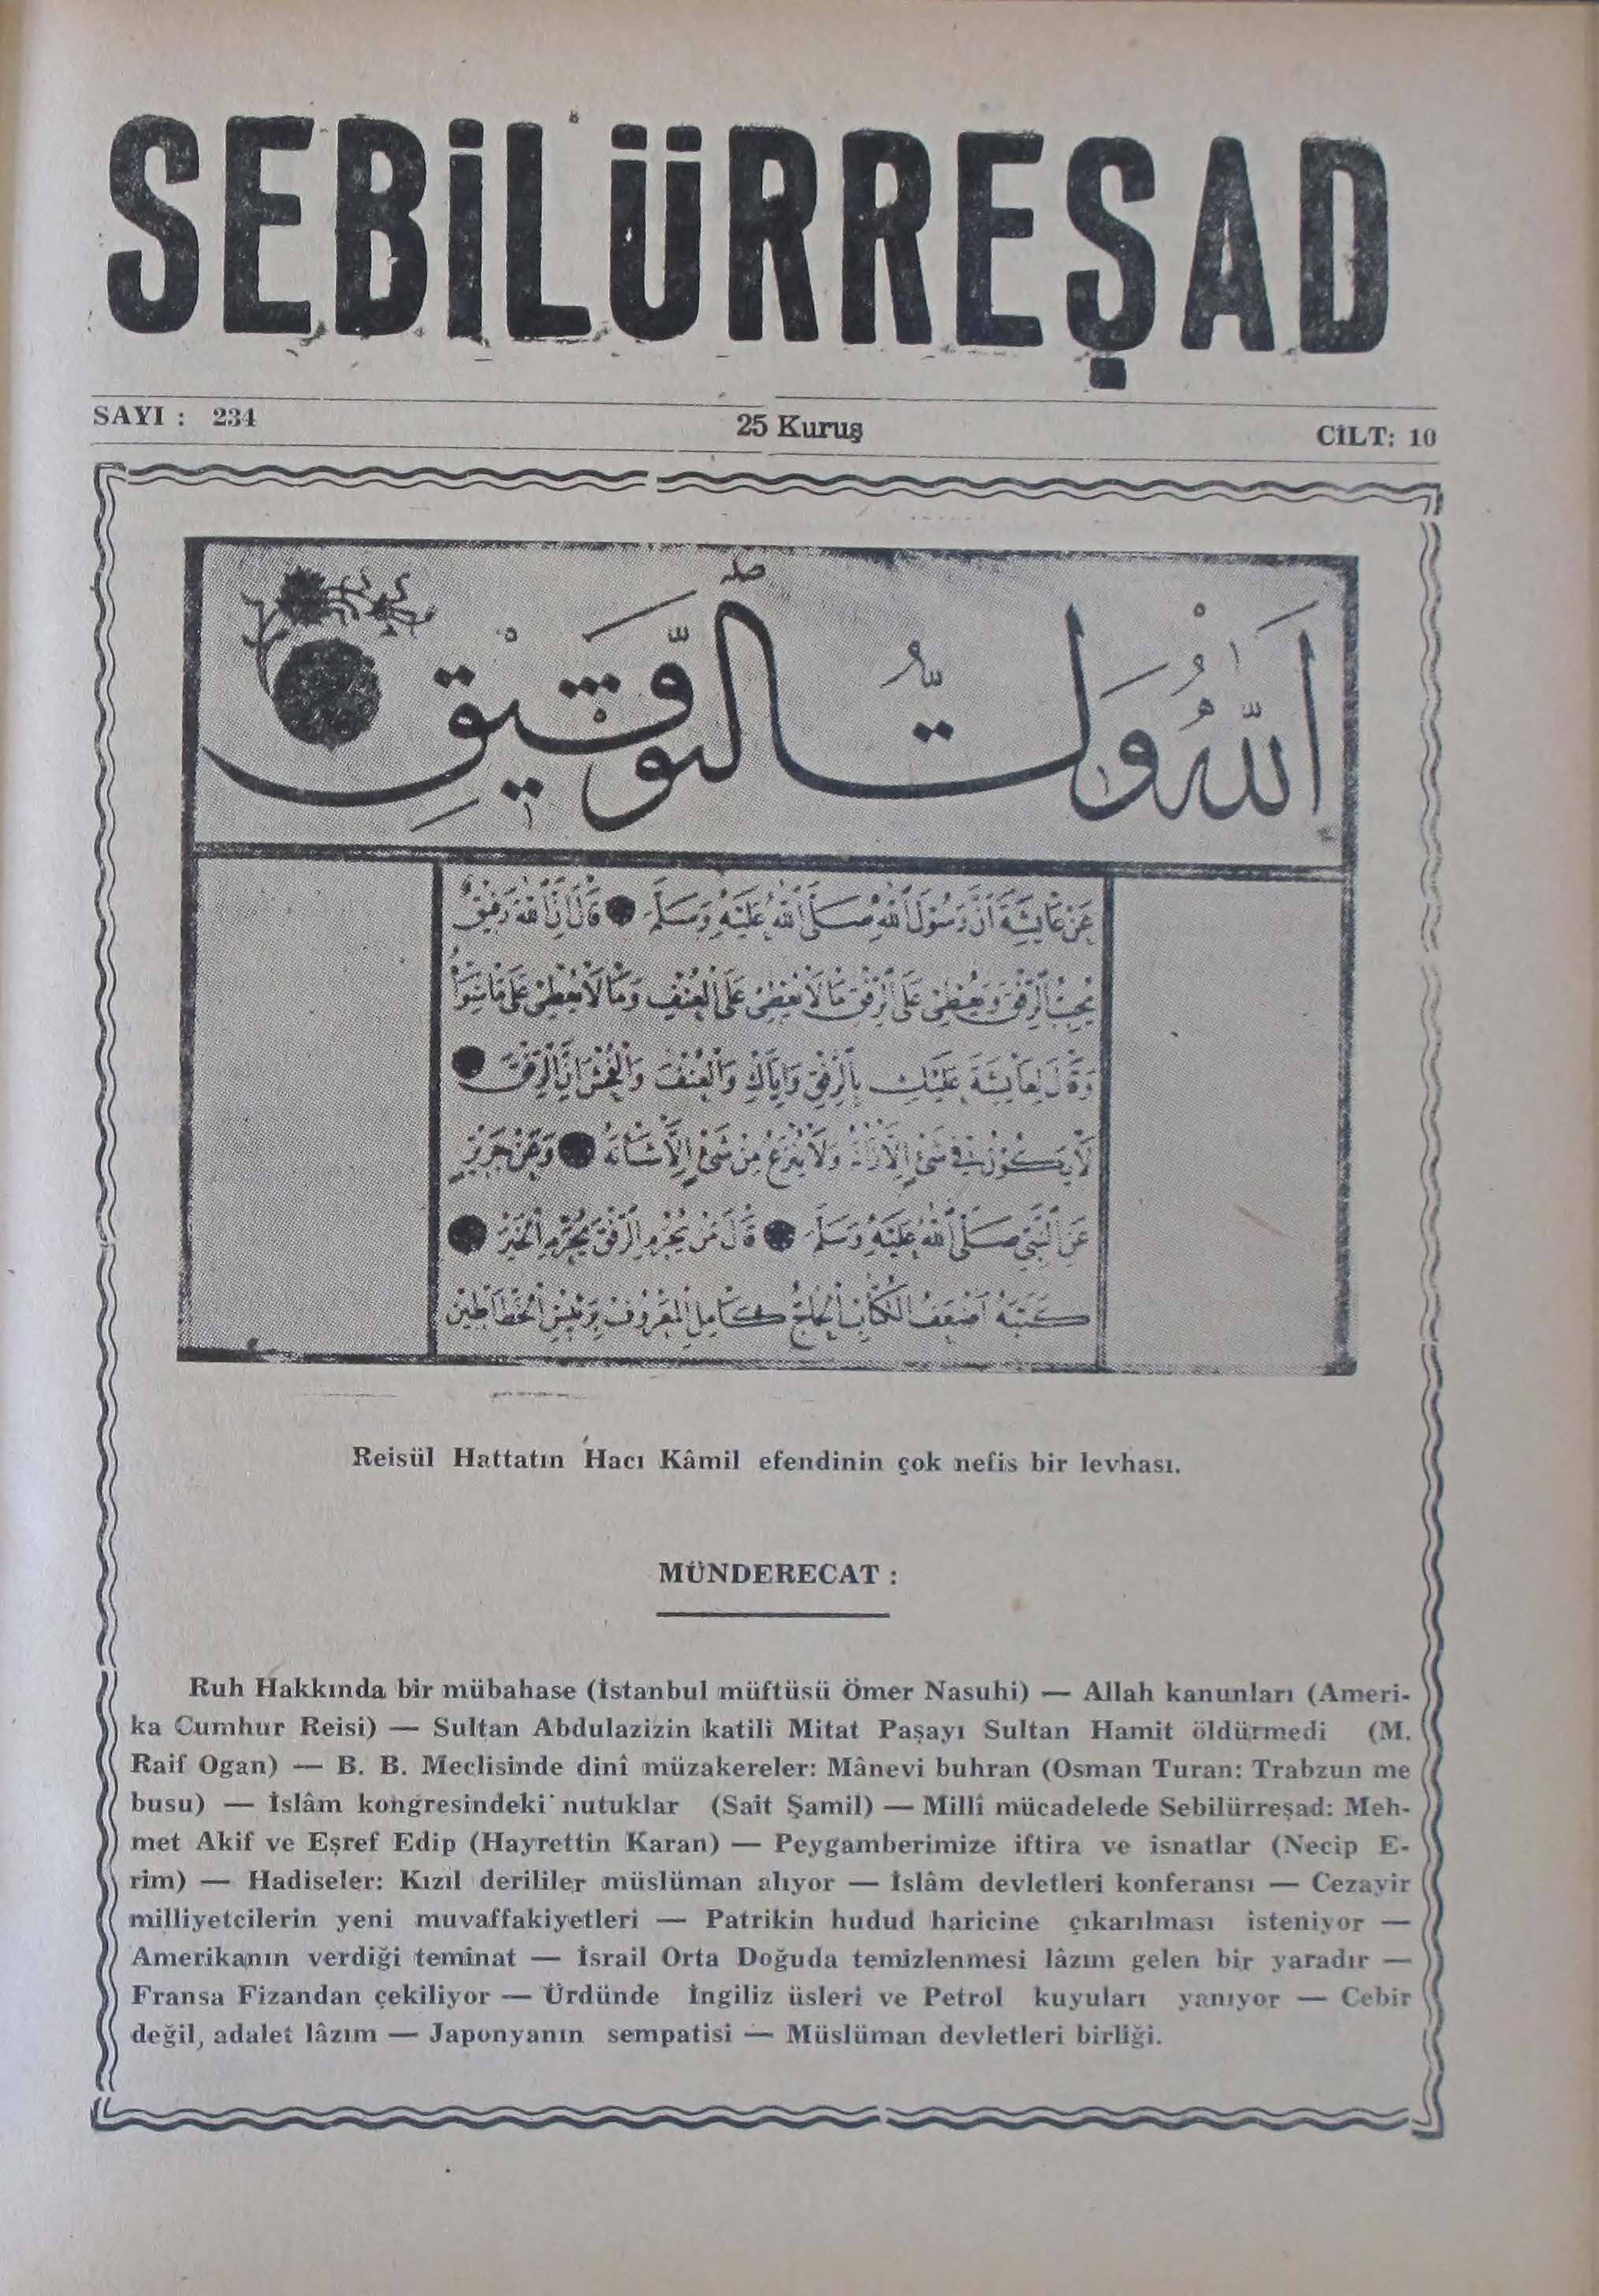 SEBİLÜRREŞAD
SAYI : 234
25 Kuruş
CİLT: 10
اَللّٰهُ وَلِيُّ التَّوْفِيقِ
عَنْ عَائِشَةَ اَنَّ رَسُولَ اللّٰهِ صَلَّى اللّٰهُ عَلَيْهِ وَسَلَّمَ قَالَ اِنَّ اللّٰهَ رَفِيقٌ
يُحِبُّ الرِّفْقَ وَيُعْطِى عَلَى الرِّفْقِ مَا لَا يُعْطِى عَلَى الْعُنْفِ وَمَا لَا يُعْطِى عَلَى مَا سِوَاهُ
وَقَالَ لِعَائِشَةَ عَلَيْكِ بِالرِّفْقِ وَاِيَّاكِ وَالْعُنْفَ وَالْفُحْشَ اِنَّ الرِّفْقَ
لَا يَكُونُ فِى شَىْءٍ اِلَّا زَانَهُ وَلَا يُنْزَعُ مِنْ شَىْءٍ اِلَّا شَانَهُ وَعَنْ جَرِيرٍ
عَنِ النَّبِىِّ صَلَّى اللّٰهُ عَلَيْهِ وَسَلَّمَ قَالَ مَنْ يُحْرَمِ الرِّفْقَ يُحْرَمِ الْخَيْرَ
كَتَبَهُ اَضْعَفُ الْكُتَّابِ الْحَاجُّ كَامِلُ الْمَعْرُوفُ بِرَئِيسِ الْخَطَّاطِينَ
Reisül Hattatın Hacı Kâmil efendinin çok nefis bir levhası.
MÜNDERECAT :
Ruh Hakkında bir mübahase (İstanbul müftüsü Ömer Nasuhi) — Allah kanunları (Ameri-
ka Cumhur Reisi) — Sultan Abdulazizin katili Mitat Paşayı Sultan Hamit öldürmedi (M.
Raif Ogan) — B. B. Meclisinde dinî müzakereler: Mânevi buhran (Osman Turan: Trabzun me
busu) — İslâm kongresindeki nutuklar (Sait Şamil) — Millî mücadelede Sebilürreşad: Meh-
met Akif ve Eşref Edip (Hayrettin Karan) — Peygamberimize iftira ve isnatlar (Necip E-
rim) — Hadiseler: Kızıl derililer müslüman alıyor — İslâm devletleri konferansı — Cezayir
milliyetcilerin yeni muvaffakiyetleri — Patrikin hudud haricine çıkarılması isteniyor —
Amerikanın verdiği teminat — İsrail Orta Doğuda temizlenmesi lâzım gelen bir yaradır —
Fransa Fizandan çekiliyor — Ürdünde İngiliz üsleri ve Petrol kuyuları yanıyor — Cebir
değil, adalet lâzım — Japonyanın sempatisi — Müslüman devletleri birliği.